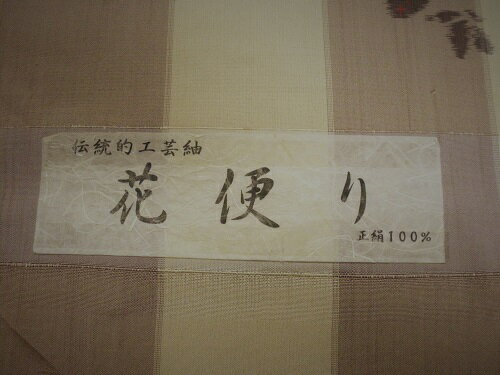 伝統的工芸紬
花便り
正絹100%